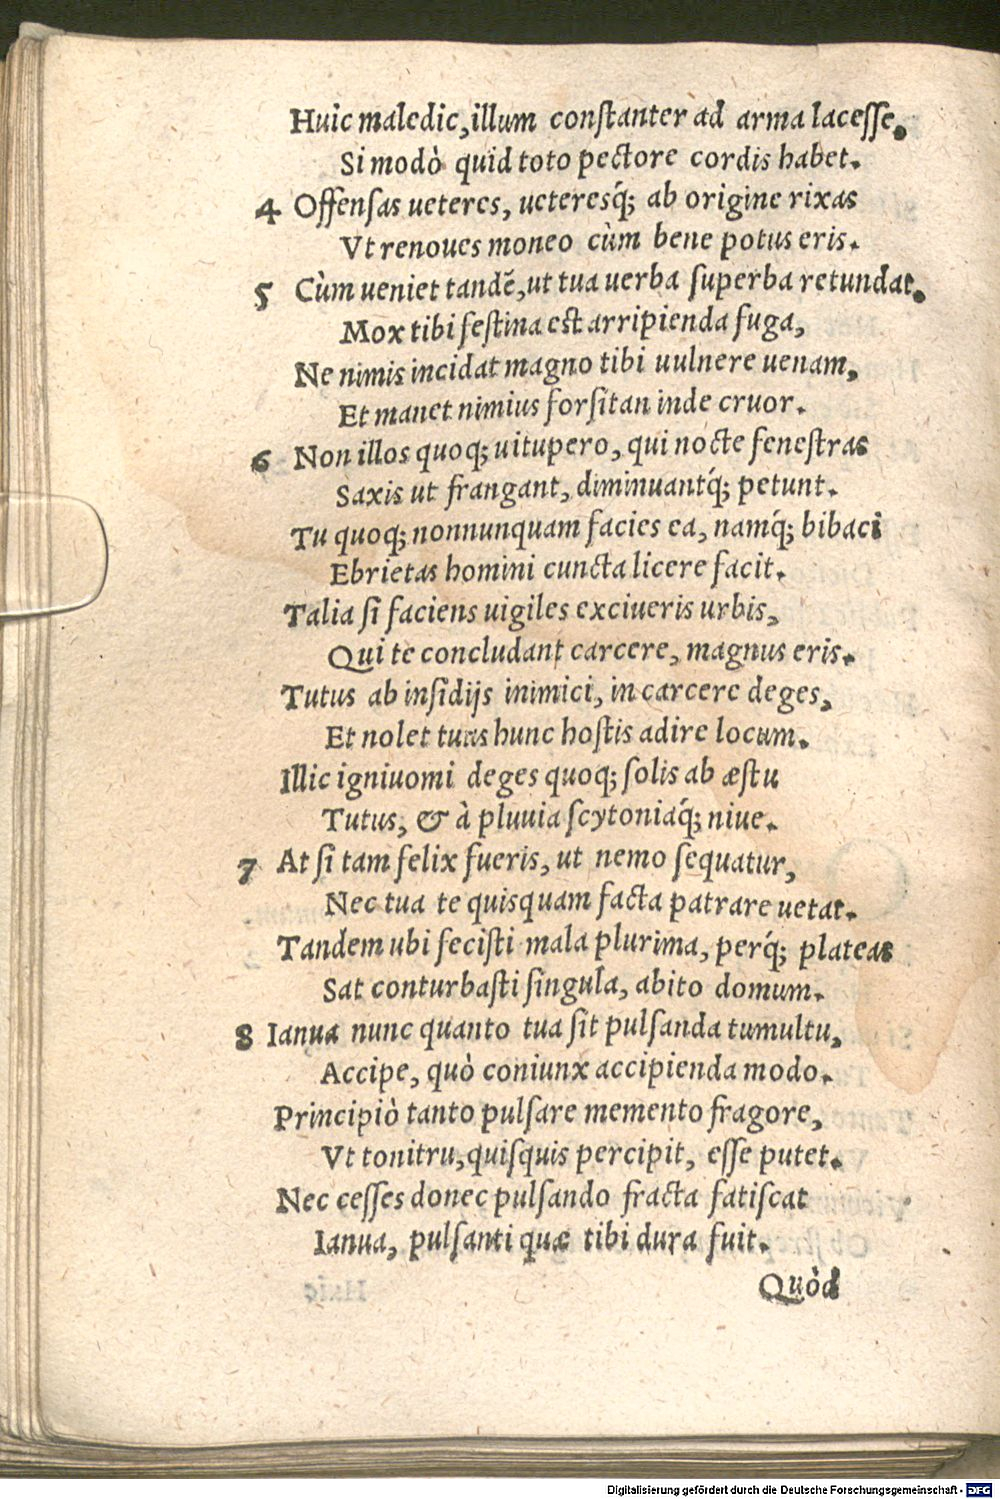 Huic maledic, illum constanter ad arma lacesse,
Si modò quid toto pectore cordis habet.
4 Offensas ueteres, ueteresq́; ab origine rixas
Vt renoues moneo cùm bene potus eris.
5 Cùm ueniet tandẽ, ut tua uerba superba retundat,
Mox tibi festina est arripienda fuga,
Ne nimis incidat magno tibi uulnere uenam,
Et manet nimius forsitan inde cruor.
6 Non illos quoq; uitupero, qui nocte fenestras
Saxis ut frangant, diminuantq́; petunt.
Tu quoq; nonnunquam facies ea, namq́; bibaci
Ebrietas homini cuncta licere facit.
Talia si faciens uigiles exciueris urbis,
Qui te concludant carcere, magnus eris.
Tutus ab insidijs inimici, in carcere deges,
Et nolet tuus hunc hostis adire locum.
Illic igniuomi deges quoq; solis ab æstu
Tutus, & à pluuia scytoniaq́; niue.
7 At si tam felix fueris, ut nemo sequatur,
Nec tua te quisquam facta patrare uetat.
Tandem ubi fecisti mala plurima, perq́; plateas
Sat conturbasti singula, abito domum.
8 Ianua nunc quanto tua sit pulsanda tumultu,
Accipe, quò coniunx accipienda modo.
Principiò tanto pulsare memento fragore,
Vt tonitru, quisquis percipit, esse putet.
Nec cesses donec pulsando fracta fatiscat
Ianua, pulsanti quæ tibi dura fuit.
Quòd
Digitalisierung gefördert durch die Deutsche Forschungsgemeinschaft - DFG